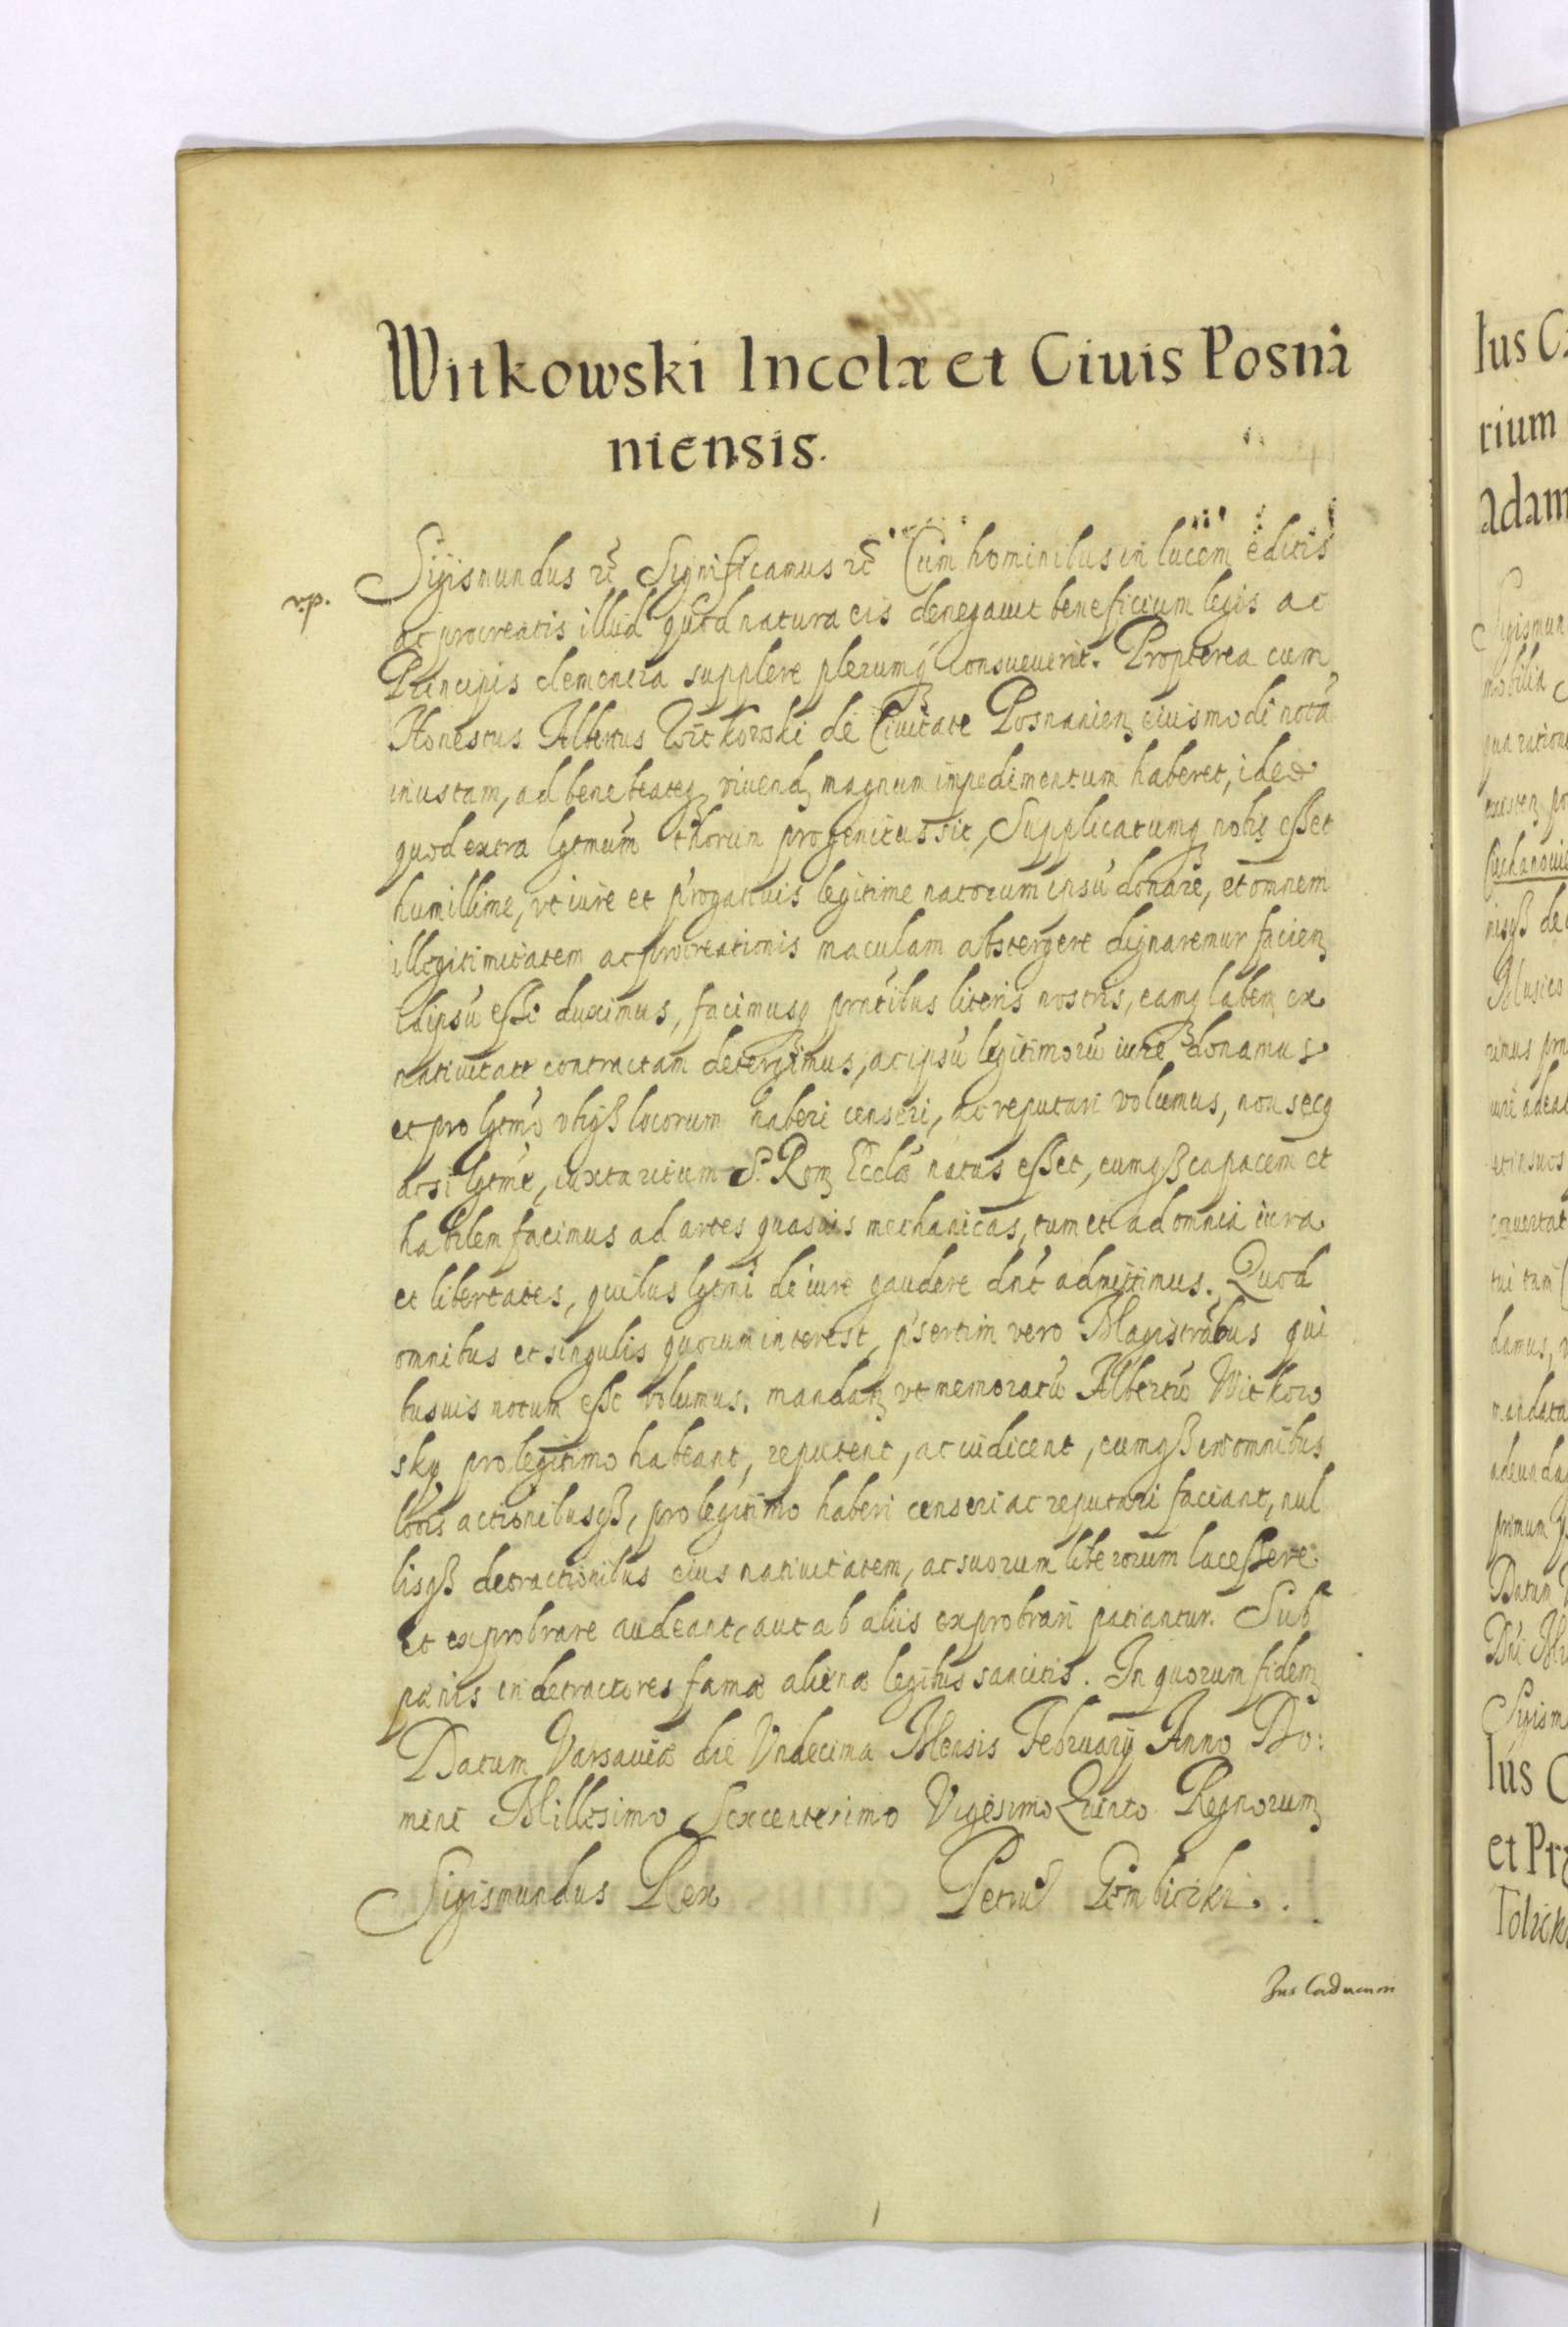 Witkowski Incolæ et Ciuis Posna
niensis.
v.p.
Sigismundus etc̃ Significamus etc̃ Cum hominibus in lucem editis
ac procreatis illud quod natura eis denegauit beneficium legis ac
Principis clementia supplere plerumq́ consueuerit. Propterea cum
Honestus Albertus Witkowski de Ciuitate Posnanien ejusmodi notã
inustam, ad bene beateq viuend magnum impedimentum haberet, ideo
quod extra lgtmum thorum progenitus sit, Supplicatumq nobis esset
humillime, vt iure et p̃rogatiuis legitime natorum ipsũ donare, et omnem
illegitimitatem ac procreationis maculam abstergere dignaremur facien
id ipsũ esse duximus, facimusq pñtibus literis nostris, eamq labem ex
natiuitate contractam detergimus, ac ipsũ legitimorũ iure donamus
et pro lgtm̃o vbiqз locorum haberi censeri, ac reputari volumus, non secq
acsi lgtm̃e, iuxta ritum S. Rom Ecclæ natus esset, eumqз capacem et
habilem facimus ad artes quasuis mechanicas, tum et ad omnia iura
et libertates, quibus lgtm̃i de iure gaudere dñt admittimus. Quod
omnibus et singulis quorum interest, p̃sertim vero Magistrãbus qui
busuis notum esse volumus. mandan vt memoratũ Albertũ Witkow
sky pro legitimo habeant, reputent, ac iudicent, eumqз in omnibus
locis actionibusqз, pro legitimo haberi censeri ac reputari faciant, nul
lisqз detractionibus eius natiuitatem, ac suorum liberorum lacessere
et exprobrare audeant, aut ab aliis exprobrari patiantur. Sub
pænis in detractores famæ alienæ legibus sancitis. In quorum fidem
Datum Varsauiæ die Vndecima Mensis Februarij Anno Do:
mini Millesimo Sexcentesimo Vigesimo Quinto Regnorum
Sigismundus Rex Petrus Gembicki.
Jus Caducum